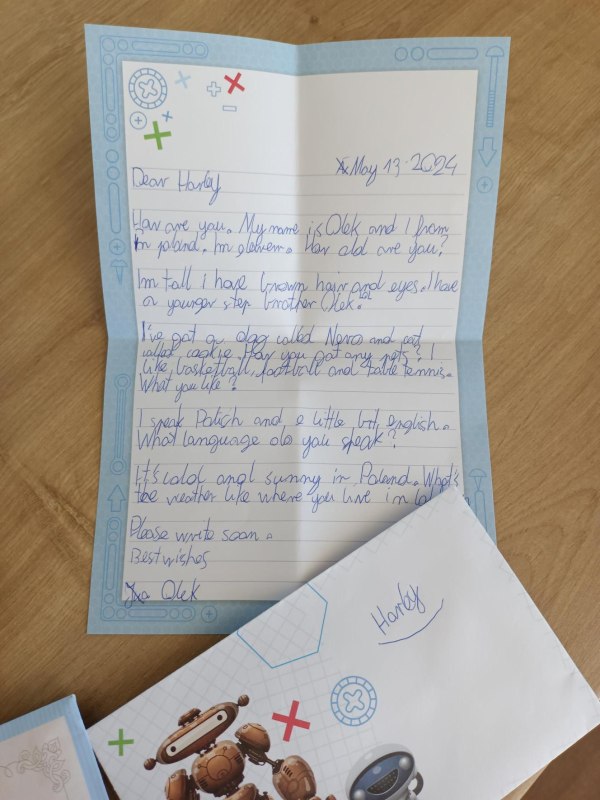 May 13 2024
Dear Harley
How are you. My name is Olek and I from
in poland. Im elevem. How old are you?
Im tall i have brown hair and eyes. I have
a younger step brother Olek.
I've got a dog called Nero and cat
called cookie. Hav you got any pets? I
like, basketball, football and table tennis.
What you like?
I speak Polich and a little bit, english.
What language do you speak?
It's cold and sunny in Poland. What's
the weather like where you live in
Please write soon.
Best wishes
Olek
Harley